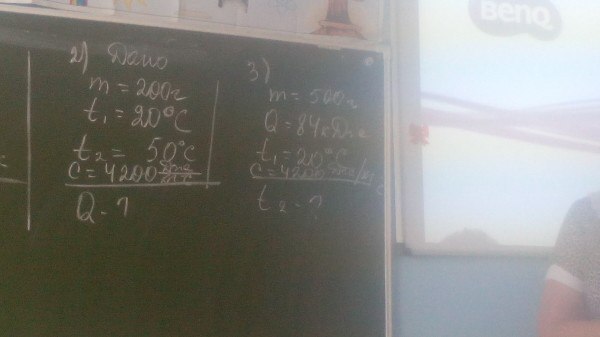 2) Дано
m = 200г
t₁ = 20°C
t₂ = 50°C
c = 4200 Дж/кг°C
Q - ?
3)
m = 500г
Q = 84кДж
t₁ = 20°C
c = 4200 Дж/кг°C
t₂ - ?
BenQ